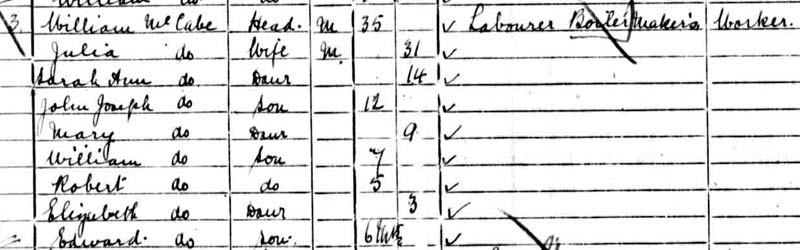 3 William McCabe Head. M 35 Labourer Boiler Maker's Worker.
Julia do Wife M. 31
Sarah Ann do Daur 14
John Joseph do Son 12
Mary do Daur 9
William do Son 7
Robert do do 5
Elizabeth do Daur 3
Edward. do Son. 6 Mths